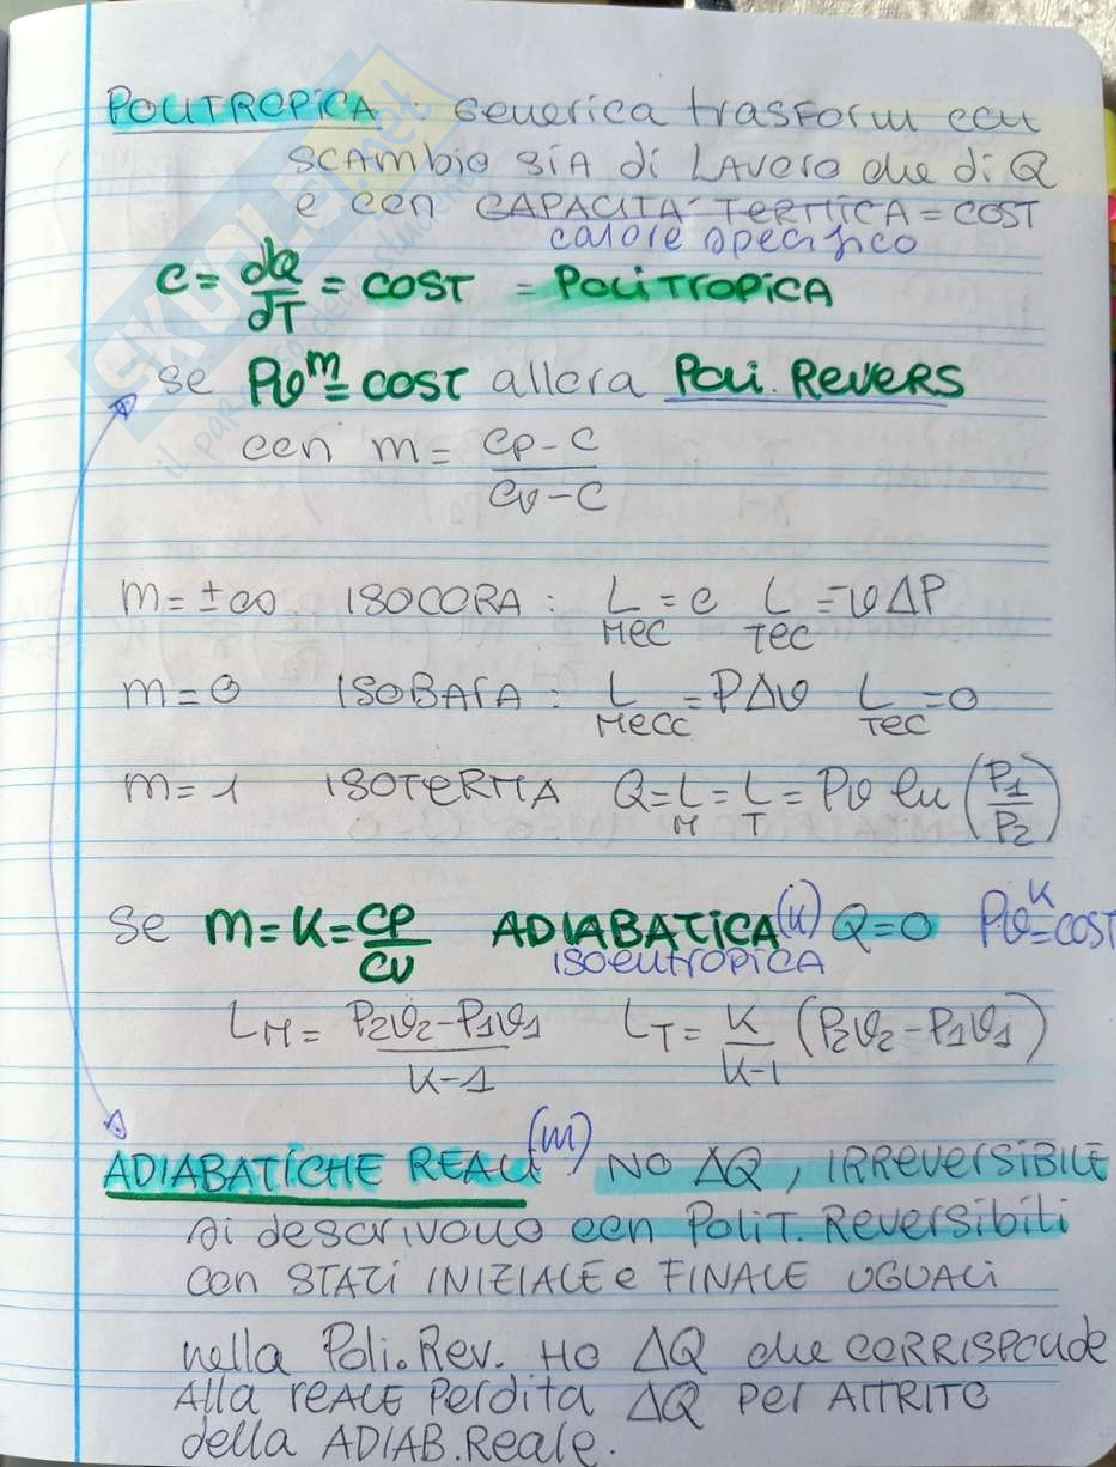 POLITROPICA : Generica trasform con
SCAMBIO SIA di LAVORO che di Q
e con CAPACITA' TERMICA = COST
calore specifico
c = dQ/dT = COST = POLITROPICA
se Pv^m = COST allora Poli. REVERS
con m = (Cp - C)/(Cv - C)
m = ±∞. ISOCORA : L MEC = 0 L TEC = v ΔP
m = 0 ISOBARA : L MECC = PΔv L TEC = 0
m = 1 ISOTERMA Q = L M = L T = Pv ln (P1/P2)
Se m = K = CP/CV ADIABATICA (K) Q = 0 Pv^K = COST
ISOENTROPICA
LM = (P2v2 - P1v1)/(K-1) LT = K/(K-1) (P2v2 - P1v1)
ADIABATICHE REALI (m) NO ΔQ, IRREVERSIBILE
si descrivono con POLIT. Reversibili
con STATI INIZIALE e FINALE UGUALI
nella Poli. Rev. HO ΔQ che CORRISPONDE
Alla reALE Perdita ΔQ per ATTRITO
della ADIAB. Reale.
SKUOLA.net